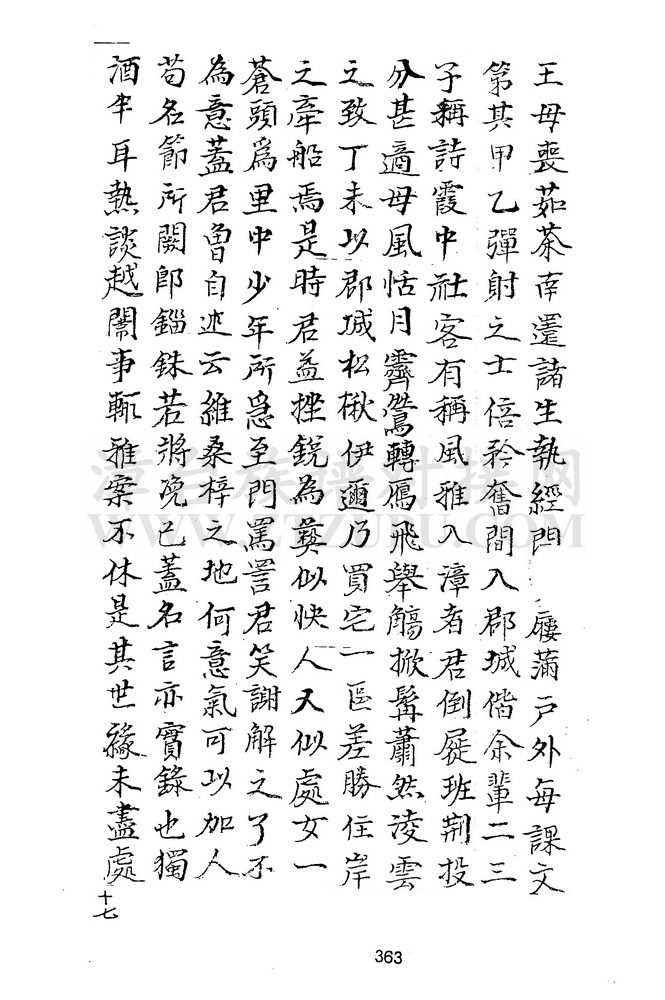 王母喪茹荼南還諸生執經問 屨滿戶外每課文
第其甲乙彈射之士倍矜奮間入郡城偕余輩二三
子稱詩霞中社客有稱風雅入漳者君倒屣班荆投
分甚適毋風恬月霽鶯轉鴈飛舉觴掀髯蕭然淩雲
之致丁未以郡城松楸伊邇乃買宅一區差勝住岸
之牽船焉是時君益挫銳為龔似快人又似處女一
蒼頭爲里中少年所急至門罵詈君笑謝解之了不
為意蓋君魯自述云維桑梓之地何意氣可以加人
苟名節所闕郎錙銖若將浼已蓋名言亦實錄也獨
酒半耳熱談越鬧事輒雅案不休是其世緣未盡處
十七
363
漳台族譜對接網
WWW.ZTZUPU.COM